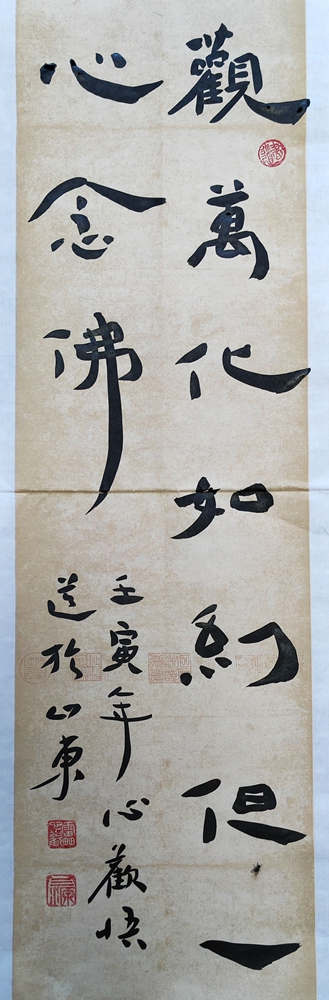 觀萬化如幻但一
心念佛
壬寅年心觀悟
道於山東